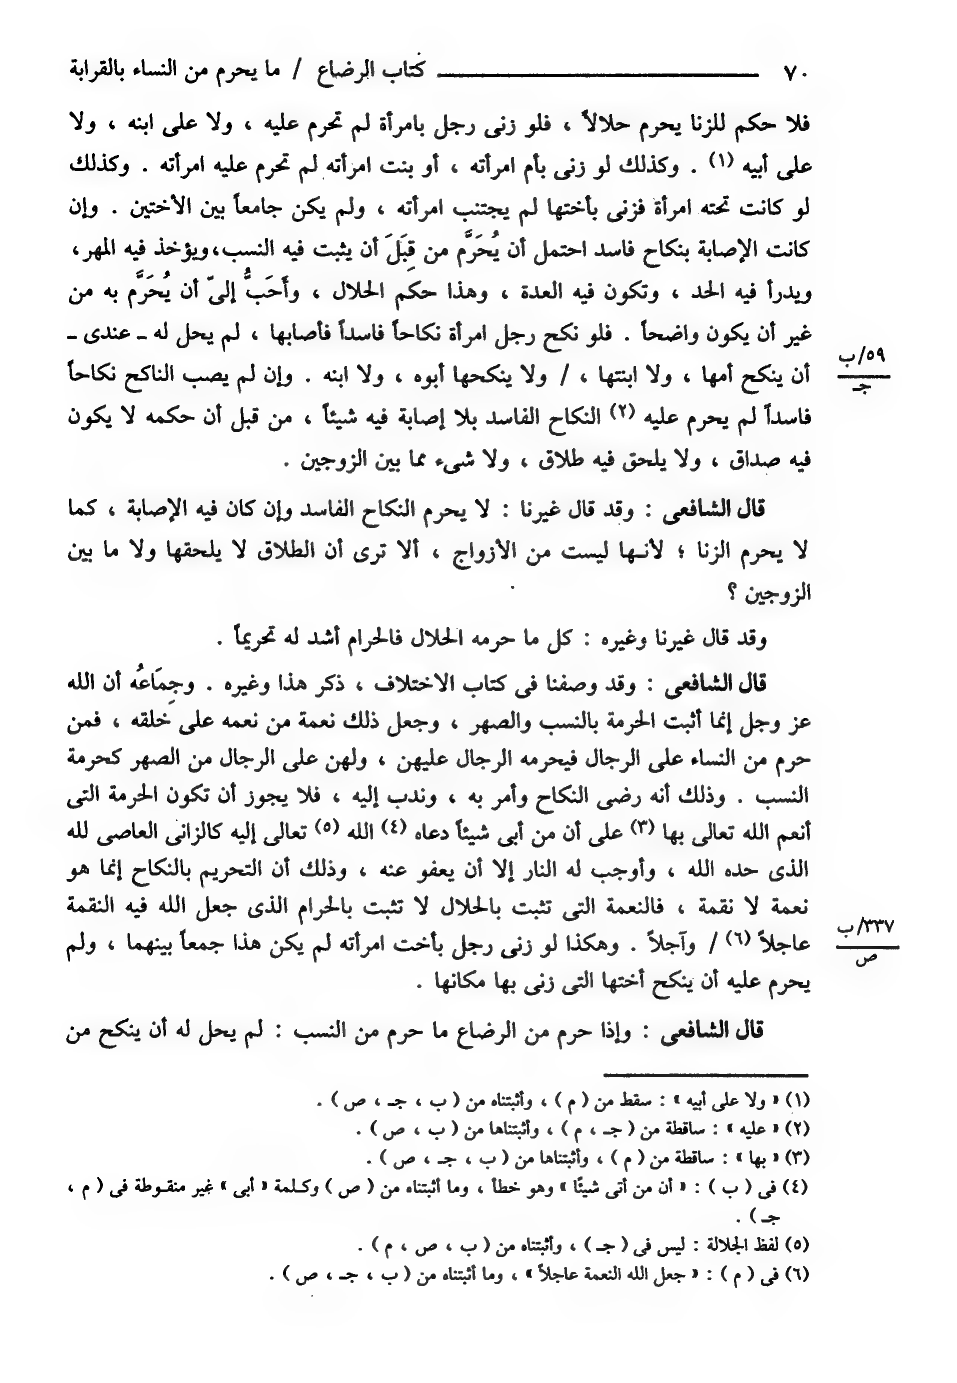 ٧٠ كتاب الرضاع / ما يحرم من النساء بالقرابة
فلا حكم للزنا يحرم حلالاً ، فلو زنى رجل بامرأة لم تحرم عليه ، ولا على ابنه ، ولا
على أبيه (١) . وكذلك لو زنى بأم امرأته ، أو بنت امرأته لم تحرم عليه امرأته . وكذلك
لو كانت تحته امرأة فزنى بأختها لم يجتنب امرأته ، ولم يكن جامعاً بين الأختين . وإن
كانت الإصابة بنكاح فاسد احتمل أن يُحَرَّم من قِبَلَ أن يثبت فيه النسب،ويؤخذ فيه المهر،
ويدرأ فيه الحد ، وتكون فيه العدة ، وهذا حكم الحلال ، وأَحَبُّ إلىّ أن يُحَرَّم به من
غير أن يكون واضحاً . فلو نكح رجل امرأة نكاحاً فاسداً فأصابها ، لم يحل له ـ عندى ـ
٥٩/ب
أن ينكح أمها ، ولا ابنتها ، / ولا ينكحها أبوه ، ولا ابنه . وإن لم يصب الناكح نكاحاً
جـ
فاسداً لم يحرم عليه (٢) النكاح الفاسد بلا إصابة فيه شيئاً ، من قبل أن حكمه لا يكون
فيه صداق ، ولا يلحق فيه طلاق ، ولا شىء مما بين الزوجين .
قال الشافعى : وقد قال غيرنا : لا يحرم النكاح الفاسد وإن كان فيه الإصابة ، كما
لا يحرم الزنا ؛ لأنـها ليست من الأزواج ، ألا ترى أن الطلاق لا يلحقها ولا ما بين
الزوجين ؟
وقد قال غيرنا وغيره : كل ما حرمه الحلال فالحرام أشد له تحريماً .
قال الشافعى : وقد وصفنا فى كتاب الاختلاف ، ذكر هذا وغيره . وجِمَاعُه أن الله
عز وجل إنما أثبت الحرمة بالنسب والصهر ، وجعل ذلك نعمة من نعمه على خلقه ، فمن
حرم من النساء على الرجال فيحرمه الرجال عليهن ، ولهن على الرجال من الصهر كحرمة
النسب . وذلك أنه رضى النكاح وأمر به ، وندب إليه ، فلا يجوز أن تكون الحرمة التى
أنعم الله تعالى بها (٣) على أن من أبى شيئاً دعاه (٤) الله (٥) تعالى إليه كالزانى العاصى لله
الذى حده الله ، وأوجب له النار إلا أن يعفو عنه ، وذلك أن التحريم بالنكاح إنما هو
نعمة لا نقمة ، فالنعمة التى تثبت بالحلال لا تثبت بالحرام الذى جعل الله فيه النقمة
٣٣٧/ب
عاجلاً (٦) / وآجلاً . وهكذا لو زنى رجل بأخت امرأته لم يكن هذا جمعاً بينهما ، ولم
ص
يحرم عليه أن ينكح أختها التى زنى بها مكانها .
قال الشافعى : وإذا حرم من الرضاع ما حرم من النسب : لم يحل له أن ينكح من
(١) « ولا على أبيه » : سقط من ( م ) ، وأثبتناه من ( ب ، جـ ، ص ) .
(٢) « عليه » : ساقطة من ( جـ ، م ) ، وأثبتناها من ( ب ، ص ) .
(٣) « بها » : ساقطة من ( م ) ، وأثبتناها من ( ب ، جـ ، ص ) .
(٤) فى ( ب ) : « أن من أتى شيئًا » وهو خطأ ، وما أثبتناه من ( ص ) وكـلمة « أبى » غير منقـوطة فى ( م ،
جـ ) .
(٥) لفظ الجلالة : ليس فى ( جـ ) ، وأثبتناه من ( ب ، ص ، م ) .
(٦) فى ( م ) : « جعل الله النعمة عاجلاً » ، وما أثبتناه من ( ب ، جـ ، ص ) .